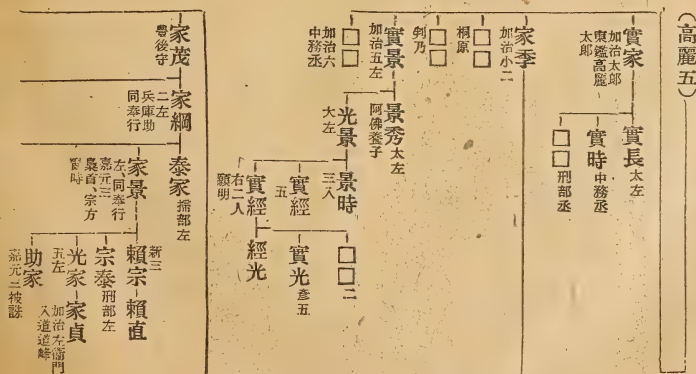 （高麗五）
實家
加治太郎
東鑑高麗
太郎
實長 太左
實時 中務丞
□□ 刑部丞
家季
加治小二
□□
桐原
□□
判乃
實景
加治五左
□□
加治六
中務丞
景秀 太左
阿佛養子
光景
大左
景時
三入
□□ 二
實經
五
實光 彥五
實經
右二人
顯明
經光
家茂
豐後守
家綱
二左
兵庫助
同奉行
泰家 掃部左
家景
左、同奉行
嘉元三
梟首、宗方
賴宗
新三
賴直
宗泰 刑部左
光家
五左
家貞
加治左衞門
入道道峰
助家
嘉元三被誅